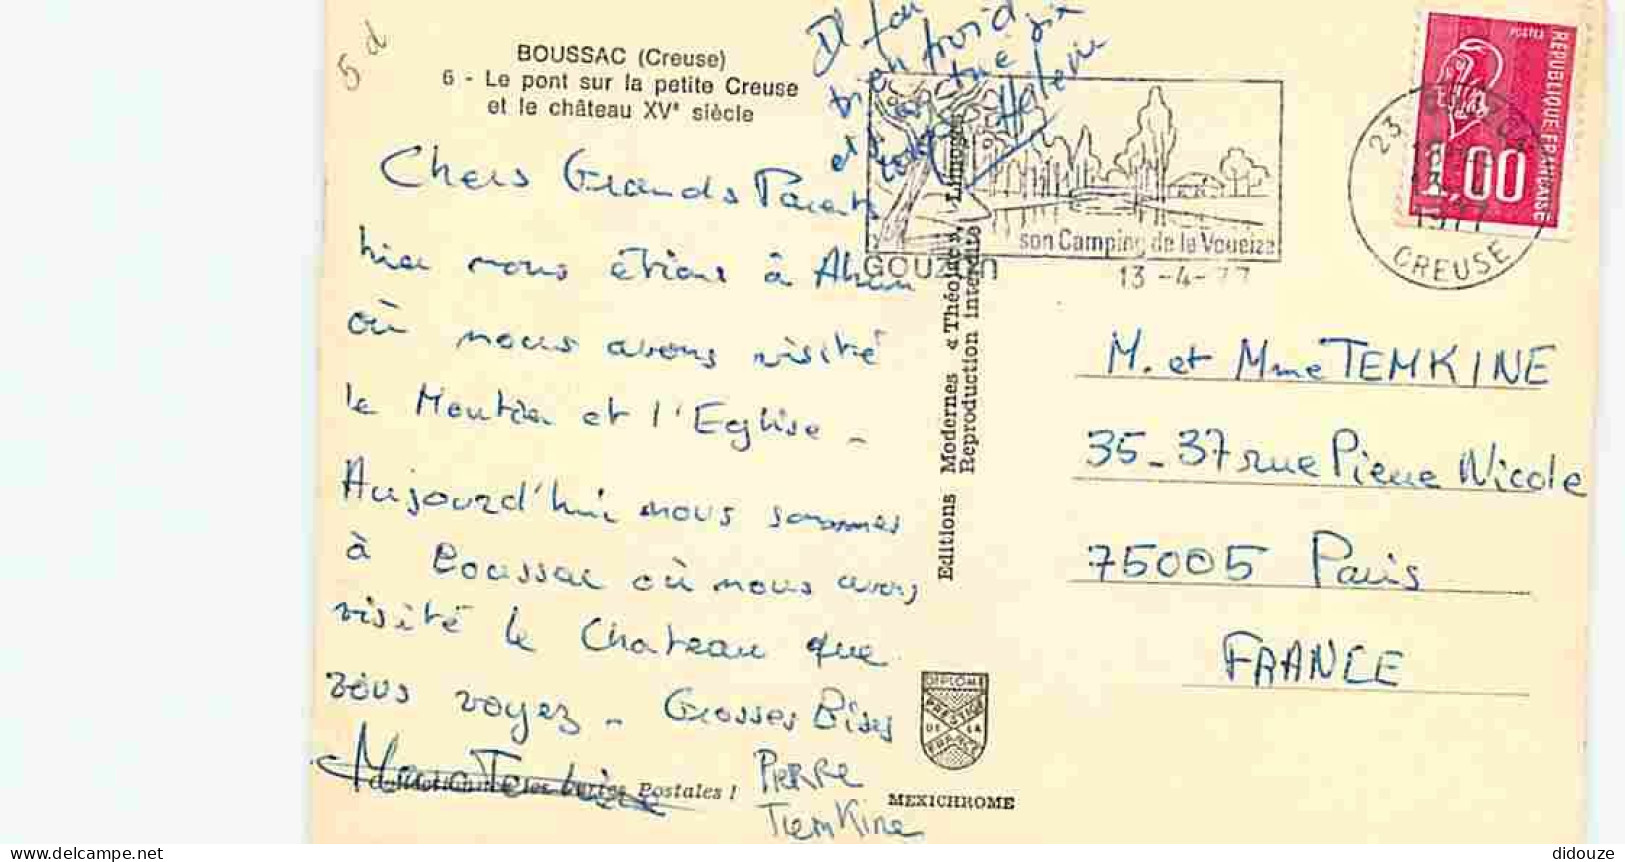 5d
BOUSSAC (Creuse)
6 - Le pont sur la petite Creuse
et le château XVe siècle
Il fait
bien froid
et
Hélène
Chers Grands Parents
hier nous étions à Ahun
où nous avons visité
le Moutier et l'Eglise -
Aujourd'hui nous sommes
à Boussac où nous avons
visité le Chateau que
vous voyez - Grosses Bises
Postales !
PIERRE
TEMKINE
son Camping de la Voueize
GOUZON
13 -4- 77
Editions Modernes « Théojac », Limoges
Reproduction interdite
DIPLOME
PRESTIGE
DE LA
FRANCE
MEXICHROME
POSTES
REPUBLIQUE FRANCAISE
1.00
23
1977
CREUSE
M. et Mme TEMKINE
35-37 rue Pierre Nicole
75005 Paris
FRANCE
didouze
delcampe.net